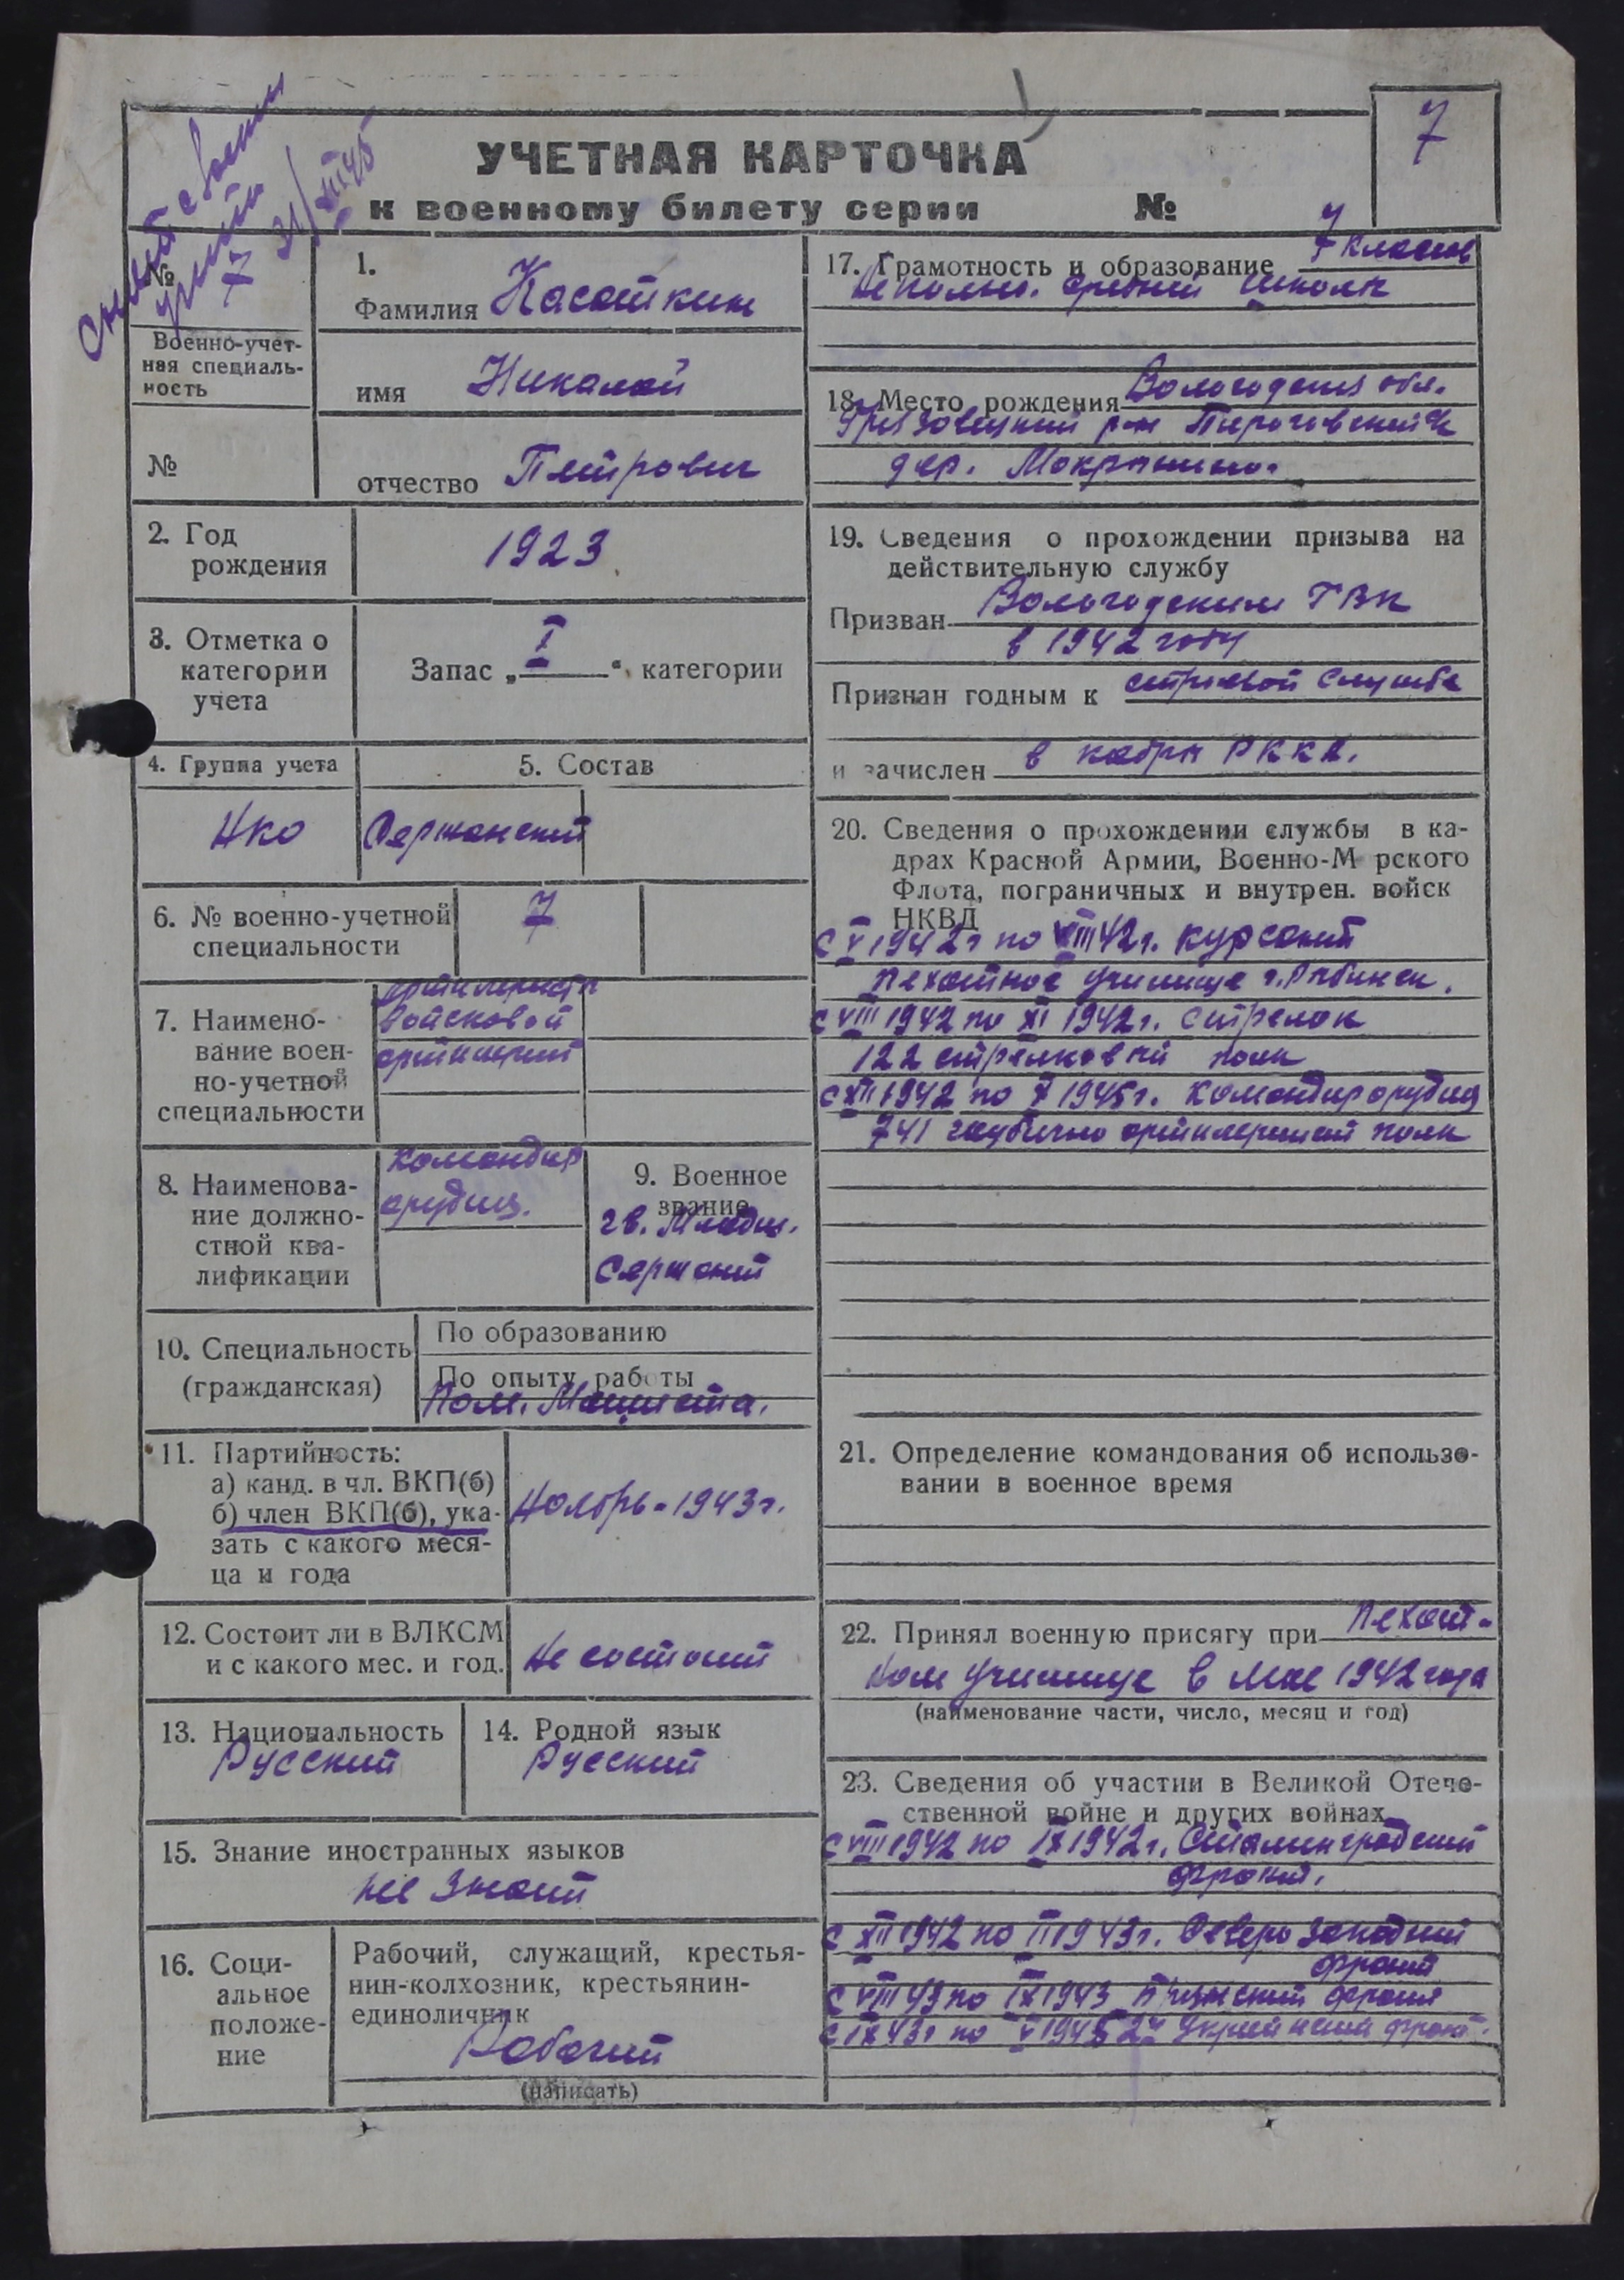 7
снят с воен
учёта
7 31/XII 45
УЧЕТНАЯ КАРТОЧКА
к военному билету серии №
№
Военно-учет-
ная специаль-
ность
№
1.
Фамилия Касаткин
имя Николай
отчество Петрович
2. Год
рождения
1923
3. Отметка о
категории
учета
Запас „I“ категории
4. Группа учета
НКО
5. Состав
Сержанский
6. № военно-учетной
специальности
7
7. Наимено-
вание воен-
но-учетной
специальности
артилеристы
войсковой
артилерии
8. Наименова-
ние должно-
стной ква-
лификации
командир
орудия.
9. Военное
звание
гв. Младш.
Сержант
10. Специальность
(гражданская)
По образованию
По опыту работы
Пом. Машиста.
11. Партийность:
а) канд. в чл. ВКП(б)
б) член ВКП(б), ука-
зать с какого меся-
ца и года
Ноябрь-1943г.
12. Состоит ли в ВЛКСМ
и с какого мес. и год.
Не состоит
13. Национальность
Русский
14. Родной язык
Русский
15. Знание иностранных языков
не знает
16. Соци-
альное
положе-
ние
Рабочий, служащий, крестья-
нин-колхозник, крестьянин-
единоличник
Рабочий
(написать)
17. Грамотность и образование 7 классов
Неполно. средний школы
18. Место рождения Вологодская обл.
Грязовецкий р-н Пироговский
дер. Мокрынино.
19. Сведения о прохождении призыва на
действительную службу
Призван Вологодским ГВК
в 1942 году
Признан годным к строевой службе
и зачислен в кадры РККА.
20. Сведения о прохождении службы в ка-
драх Красной Армии, Военно-М рского
Флота, пограничных и внутрен. войск
НКВД
С V 1942г по VIII 42г. курсант
пехотное училище г. Рыбинск.
С VIII 1942 по XI 1942г. стрелок
122 стрелковый полк
С XII 1942 по V 1945г. командир орудия
741 гаубично артилериский полк
21. Определение командования об использо-
вании в военное время
22. Принял военную присягу при Пехот-
ном училище в мае 1942 года
(наименование части, число, месяц и год)
23. Сведения об участии в Великой Отече-
ственной войне и других войнах
С VIII 1942 по IX 1942г. Сталинградский
фронт.
С XII 1942 по II 1943г. Северо Западный
фронт
С VIII 43 по IX 1943 фронт
С IX 43г по V 1945 2й Украинский фронт.